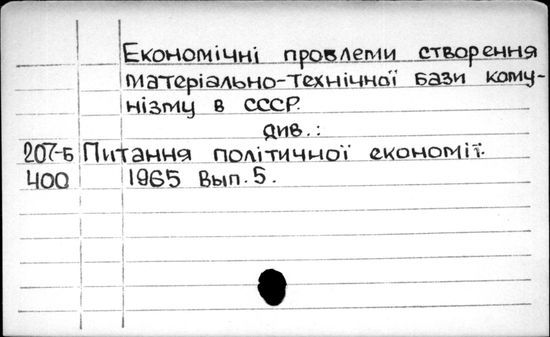 Економічні проблеми створення
матеріально-технічної бази кому-
нізму в СССР.
див.:
207-Б Питання політичної економії.
400 1965 Вып. 5.